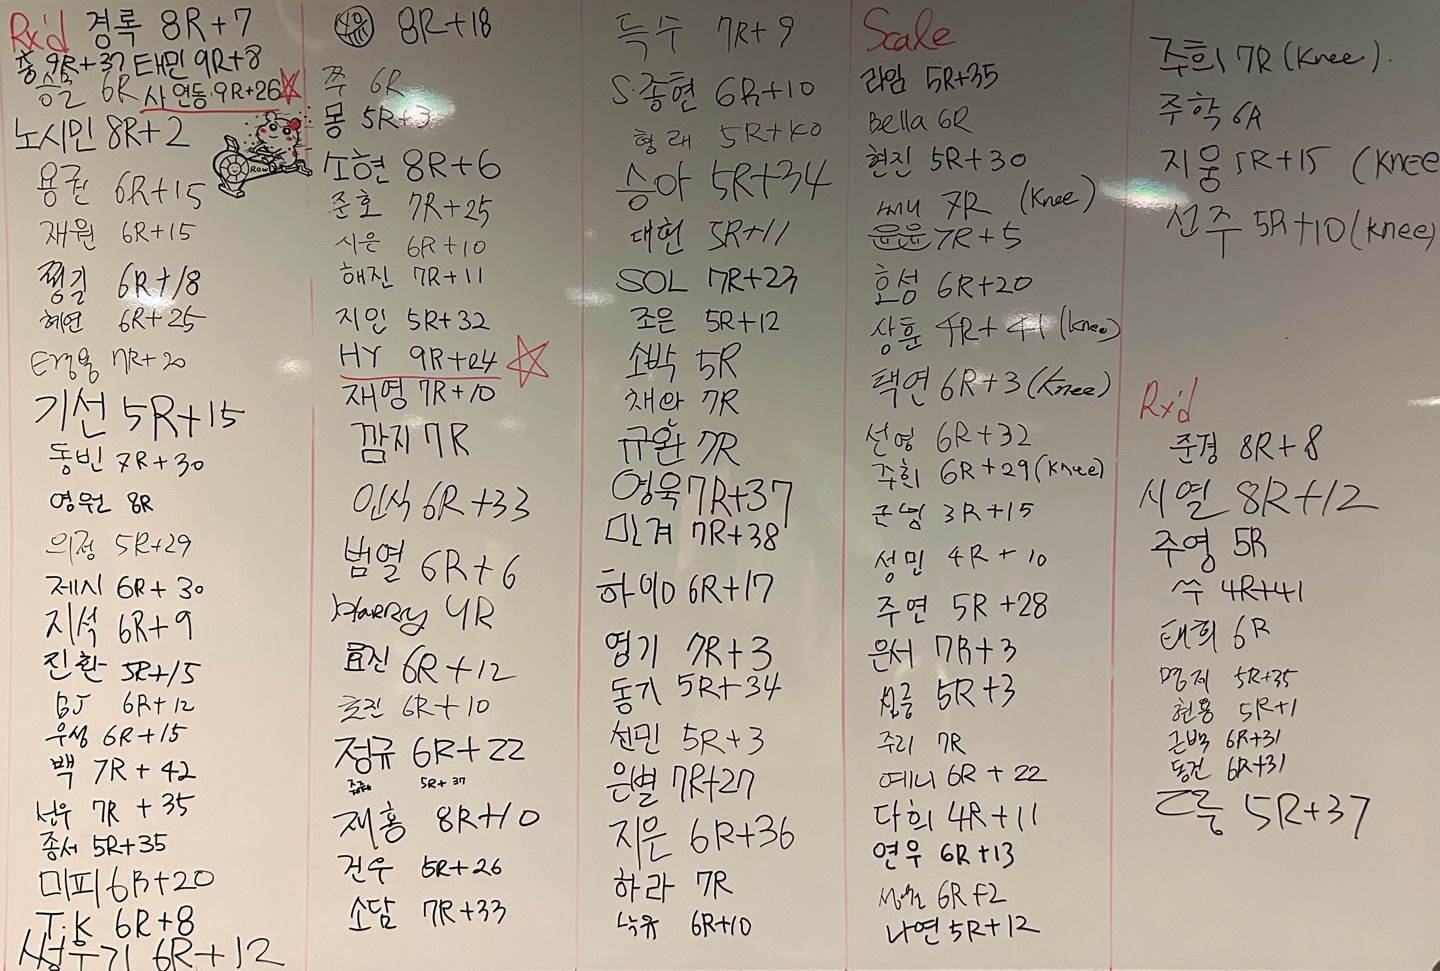 Rx'd 경록 8R+7
홍 9R+37 태민 9R+8
승길 6R 사 연동 9R+26
노시민 8R+2
ROW
용권 6R+15
재원 6R+15
찡길 6R+18
혜연 6R+25
7R+20
기선 5R+15
동빈 7R+30
영원 8R
의정 5R+29
제시 6R+30
지석 6R+9
진환 5R+15
GJ 6R+12
우성 6R+15
백 7R+42
선우 7R+35
종서 5R+35
미피 6R+20
T.K 6R+8
성우기 6R+12
8R+18
쭈 6R
몽 5R+3
소현 8R+6
준호 7R+25
시은 6R+10
해진 7R+11
지인 5R+32
HY 9R+24
재영 7R+10
깜지 7R
인식 6R+33
범열 6R+6
Harry 4R
효진 6R+12
호진 6R+10
정규 6R+22
5R+37
재홍 8R+10
건우 5R+26
소담 7R+33
득수 7R+9
S.종현 6R+10
형래 5R+40
승아 5R+34
대헌 5R+11
SOL 7R+23
조은 5R+12
소박 5R
채완 7R
규완 7R
영욱 7R+37
민겨 7R+38
하이D 6R+17
영기 7R+3
동기 5R+34
선민 5R+3
은별 7R+27
지은 6R+36
하라 7R
녹유 6R+10
Scale
라임 5R+35
Bella 6R
현진 5R+30
써니 7R (Knee)
윤윤 7R+5
효성 6R+20
상훈 4R+41 (Knee)
택연 6R+3 (Knee)
선영 6R+32
주희 6R+29 (Knee)
군넝 3R+15
성민 4R+10
주연 5R+28
은서 7R+3
5R+3
주리 7R
예니 6R+22
다희 4R+11
연우 6R+13
6R+2
나연 5R+12
주희 7R (Knee).
주학 6R
지웅 5R+15 (Knee
선주 5R+10 (Knee)
Rx'd
준경 8R+8
시열 8R+12
주영 5R
쑤 4R+41
태희 6R
명제 5R+35
현용 5R+1
근백 6R+31
동건 6R+31
5R+37